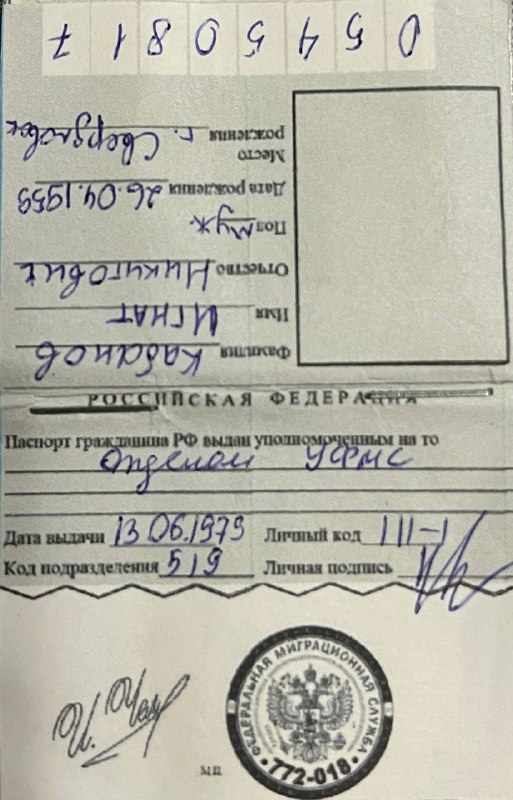 Фамилия Кабанов
Имя Игнат
Отчество Никитович
Пол муж.
Дата рождения 26.04.1959
Место
рождения г. Свердловск
0 5 4 5 0 8 1 7
РОССИЙСКАЯ ФЕДЕРАЦИЯ
Паспорт гражданина РФ выдан уполномоченным на то
Отделом УФМС
Дата выдачи 13 06.1979 Личный код
Код подразделения 519 Личная подпись
ФЕДЕРАЛЬНАЯ МИГРАЦИОННАЯ СЛУЖБА
772-018
МП